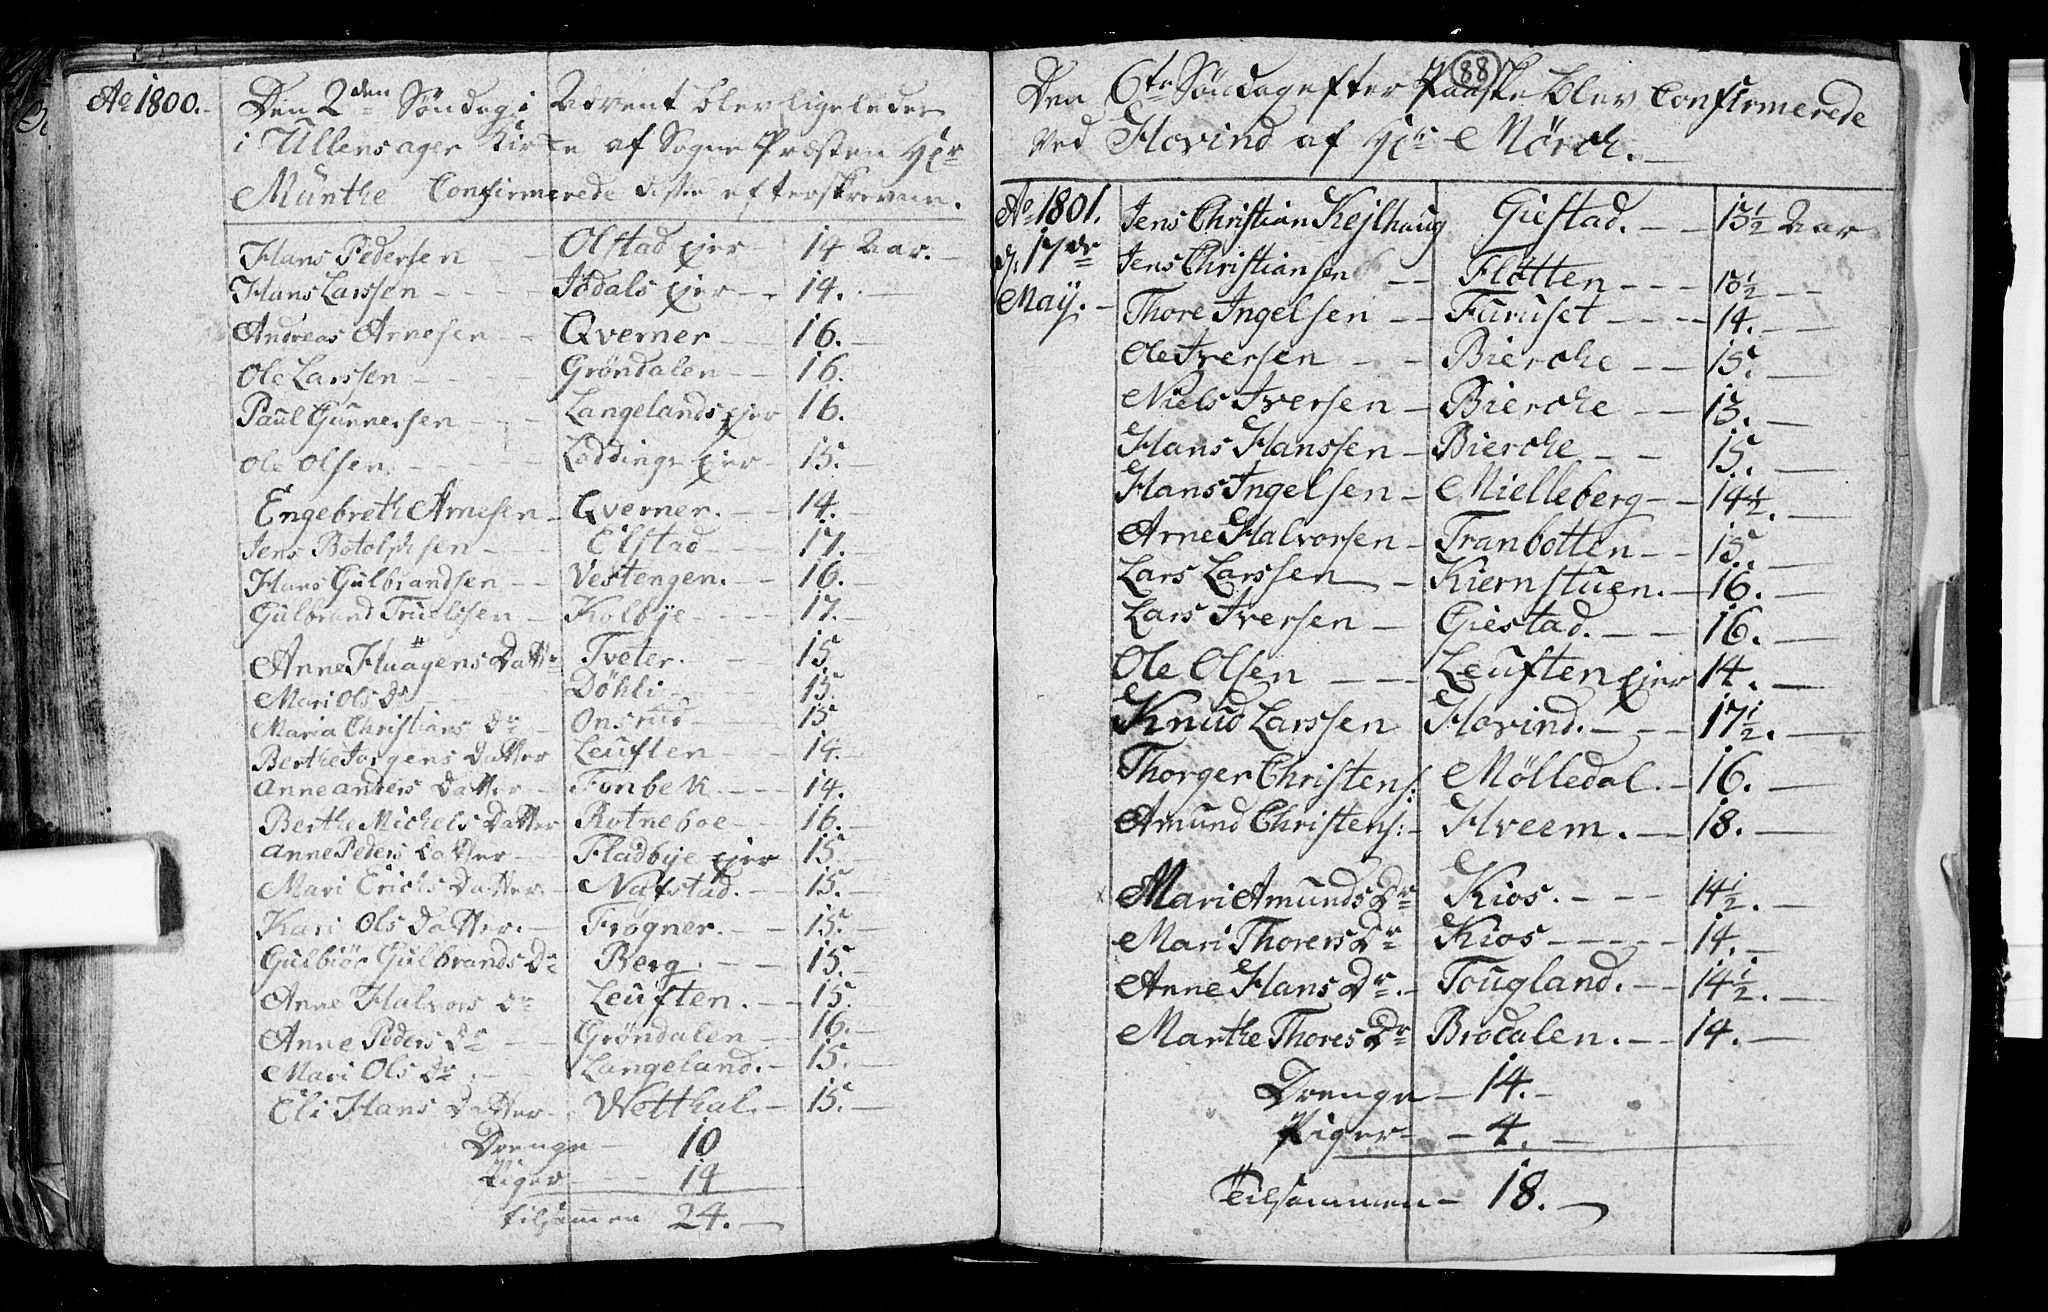 Ao 1800.
Den 2den Søndag i Advent blev ligeledes
i Ullensager Kirke af Sogne Præsten Hr
Münthe Confirmerede diste efterskrevne.
Hans Pedersen - - Olstad ejer 14 Aar. -
Hans Larssen - - - - Jødals ejer - 14. -
Andreas Arnesen - - Qverner - - 16. -
Ole Larssen - - - - Grøndalen - - 16. -
Paul Gunnersen - - - Langelands ejer 16.
Ole Olsen - - - - - Løddings ejer - 15. -
Engebreth Arnesen - Qverner. - - 14. -
Jens Botolphsen - - - Elstad - - - 17. -
Hans Gulbrandsen - - Vestengen. - - 16. -
Gulbrand Truelssen - Kolbye - - - - 17. -
Anne Huagens Datter Tveter. - - - 15
Mari Ols Dr - - - Døhli - - - 15.
Maria Christians Dr - Onsrud - - - 15
Berthe Jorgens Datter Leuften - - 14. -
Anne anders Datter - Fonbek - - - 14.
Berthe Michels Datter Rotneboe - - 16. -
Anne Peders Datter - - Fladbye ejer 15. -
Mari Erichs Datter - Nafstad. - - 15. -
Kari Ols Datter. - Frogner. - - 15. -
Gulbiør Gulbrands Dr Berg. - - - 15. -
Anne Halvors Dr Leuften. - - 15.
Anne Peders Dr - - Grøndalen - 16. -
Mari Ols Dr. - - Langeland. - 15. -
Eli Hans Datter - Wetthal. - 15. -
Drenge - 10
Piger - - - 14
tilsammen 24. -
88
Den 6te Søndag efter Paaske blev Confirmerede
ved Hovind af Hr Mörch. -
Ao 1801. Jens Christian Kejlhaug Giestad. - - 15½ Aar
d. 17de Jens Christiansen - - Flatten - - - 15½ - -
May. - Thore Ingelsen - - Furuset - - - - 14. - -
Ole Iversen - - Bierche - - 15. -
Niels Iversen - Bierche - - 13. -
Hans Hanssen - Bierche - - 15. -
Hans Ingelsen - Mielleberg - - 14½. -
Arne Halvorsen - Tranbotten - - 15. -
Lars Larssen - Kiernstuen. - 16. -
Lars Iversen - Giestad. - - - 16. -
Ole Olsen - - - Leuften ejer 14. -
Knud Larssen Hovind. - - - 17½. -
Thorger Christens: Mølledal. - 16. -
Amund Christens: - Hveem. - - 18. -
Mari Amunds Dr Kios. - - - 14½. -
Mari Thorers Dr Kios - - - - - 14. -
Anne Hans Dr. - Tougland. - - 14½. -
Marthe Thores Dr Brodalen. - - 14. -
Drenge - 14. -
Piger - - 4. -
Tilsammen - 18. -